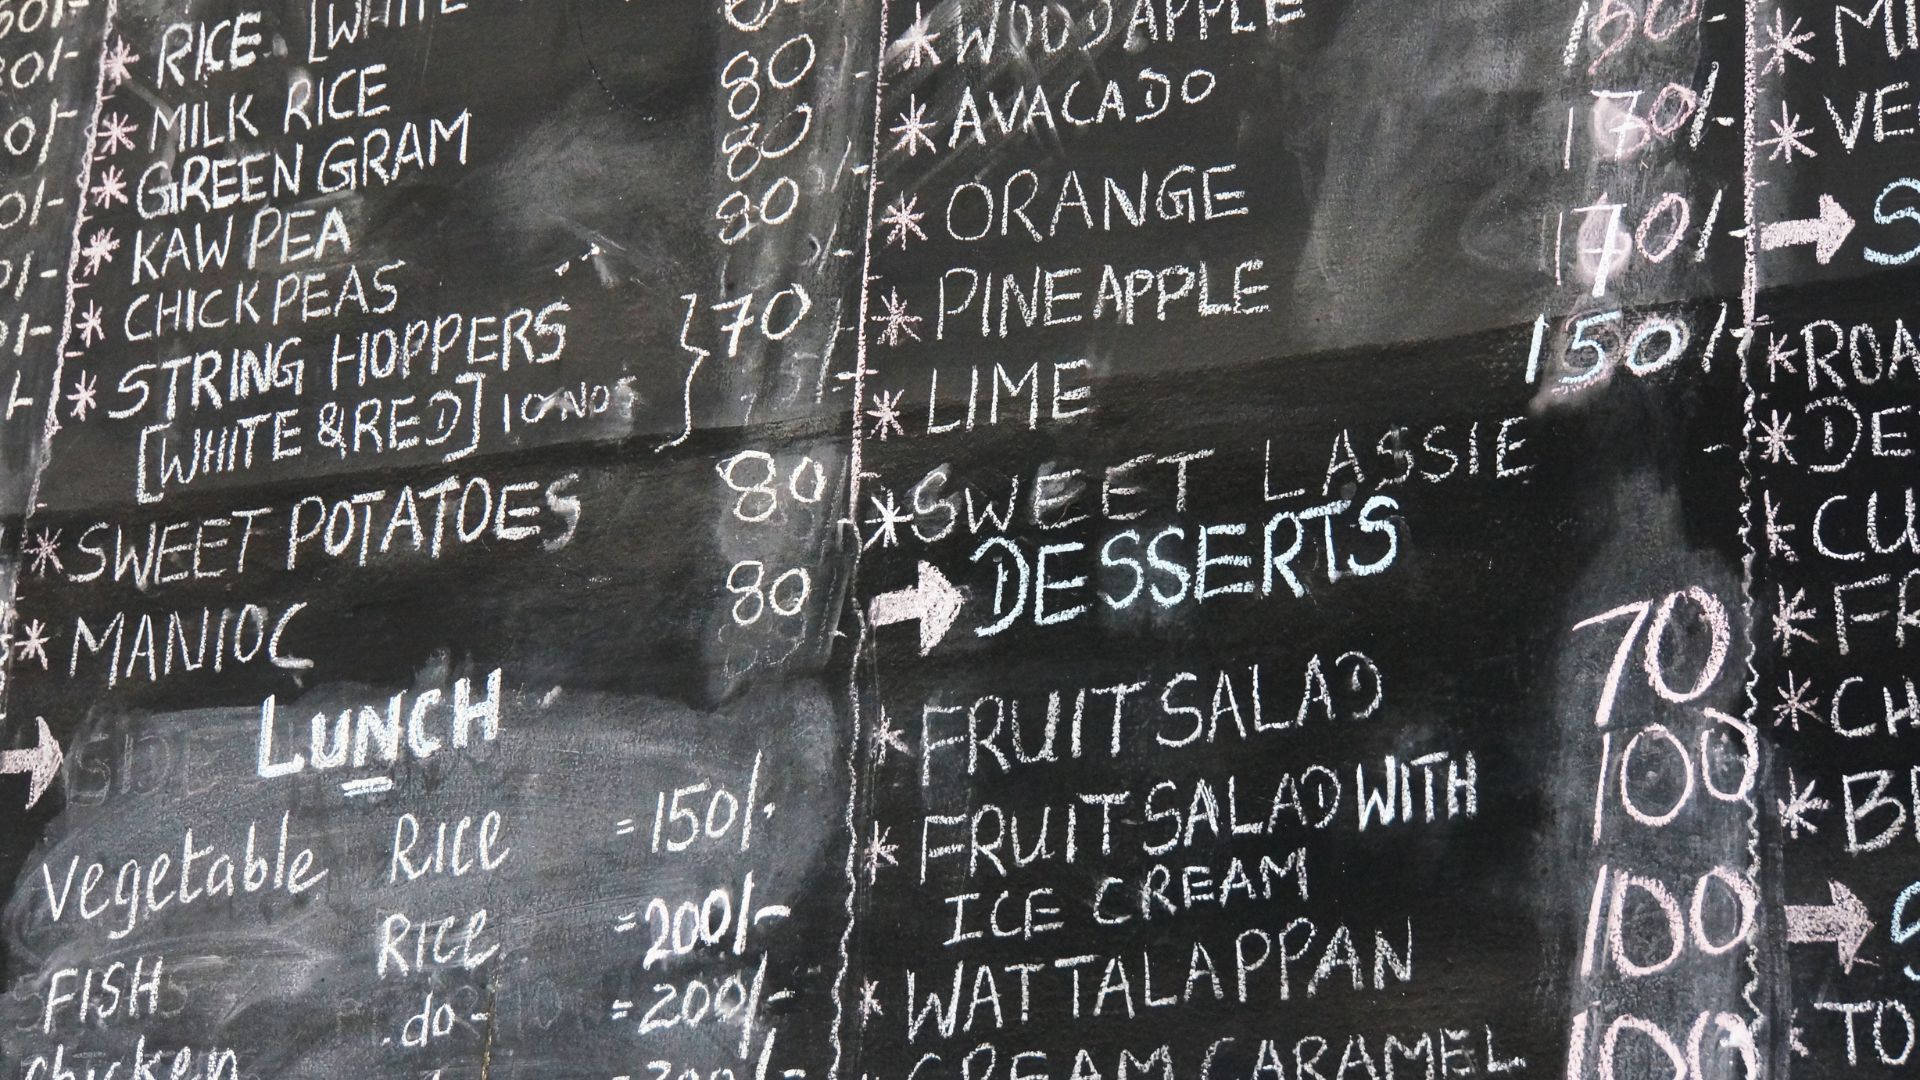 50/-
RICE. [WHITE
* MILK RICE 80
* GREEN GRAM 80
* KAW PEA 80 /-
* CHICK PEAS
* STRING HOPPERS } 70
[WHITE & RED] 10 NOS
* SWEET POTATOES 80
* MANIOC 80
LUNCH
Vegetable Rice = 150/-
FISH Rice = 200/-
chicken -do- = 200/-
* WOODAPPLE
* AVACADO 170/-
* ORANGE 170/-
* PINEAPPLE
* LIME 150/-
* SWEET LASSIE
DESSERTS
* FRUIT SALAD 70
* FRUIT SALAD WITH 100
ICE CREAM
* WATTALAPPAN 100
CREAM CARAMEL 100
* MI
* VE
S
* ROA
* DE
* CU
* FR
* CH
* BE
TO